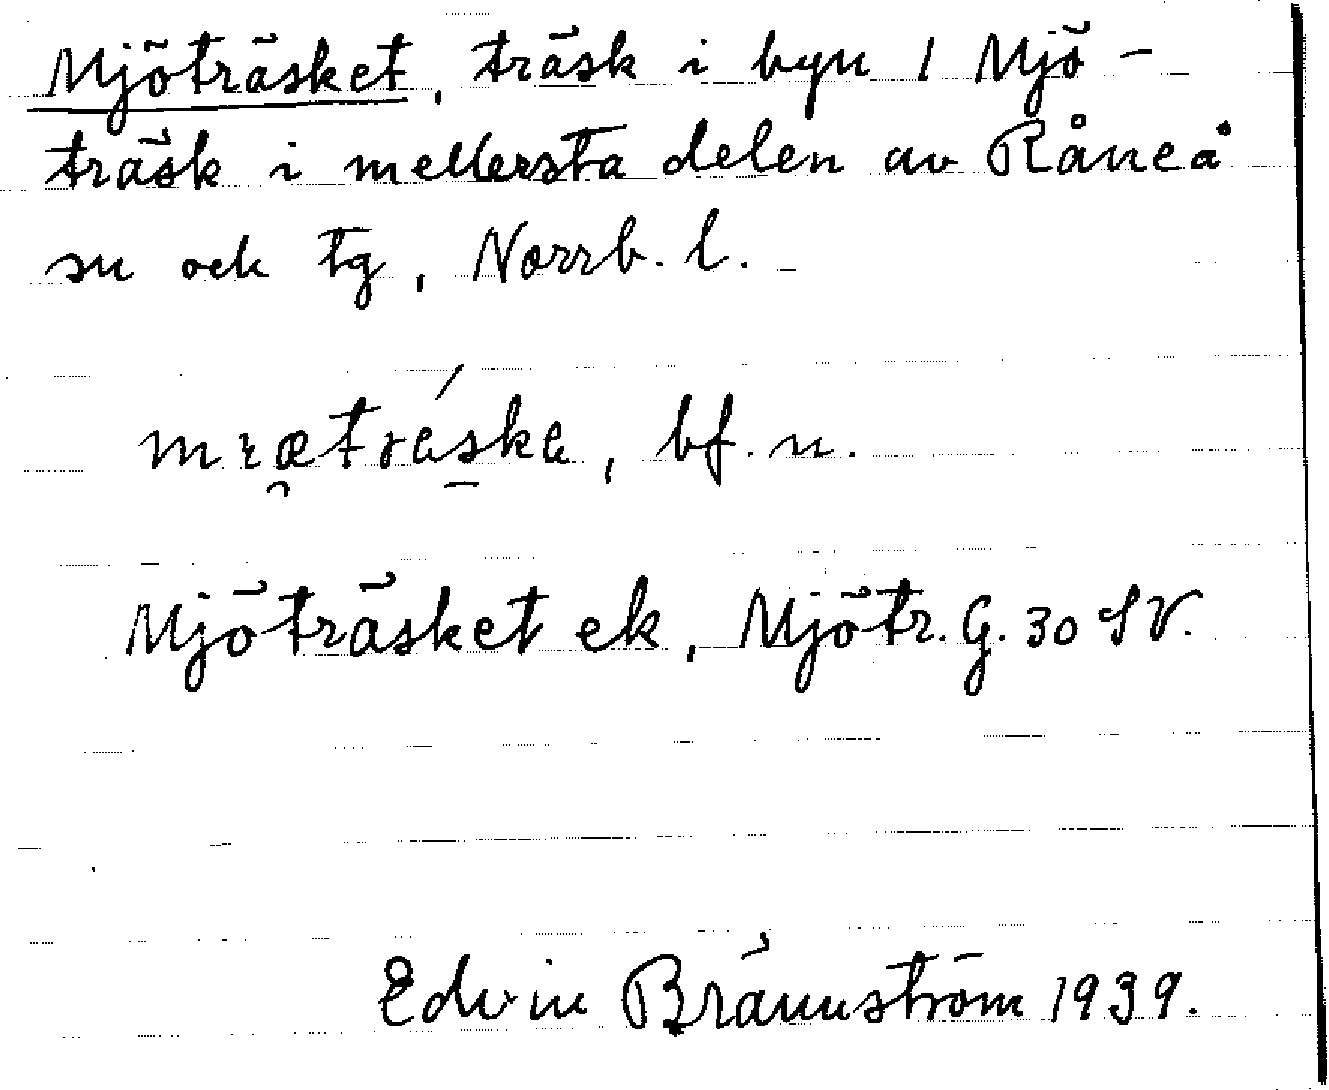 Mjöträsket, träsk i byn 1 Mjö-
träsk i mellersta delen av Råneå
sn ock tg, Norrb. l.
bf. n.
Mjöträsket ek, Mjötr. G. 30 SV.
Edvin Brännström 1939.